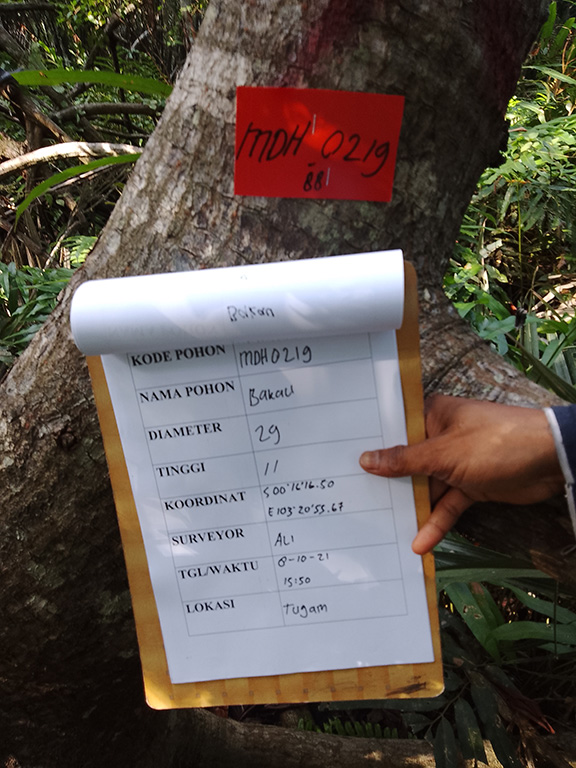 MDH 0219
88
KODE POHON MDH0219
NAMA POHON Bakau
DIAMETER 29
TINGGI 11
KOORDINAT S 00°16'16.50
E 103°20'55.67
SURVEYOR ALI
TGL/WAKTU 8-10-21
15:50
LOKASI Tugam